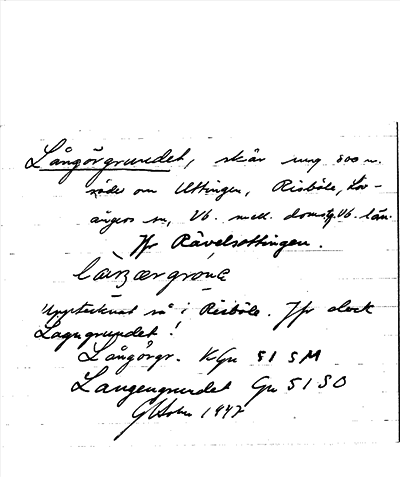 Långörgrundet, skär ung 800 m.
söder om Uttingen, Risböle, Löv-
ångers sn, Vb. mell. doms. Vb. län.
Jfr Rävelsottingen.
Upptecknat så i Risböle. Jfr dock
Lagugrundet!
Långörgr. KGu 51 SM
Langengrundet Gu 51 SO
GHolm 1947